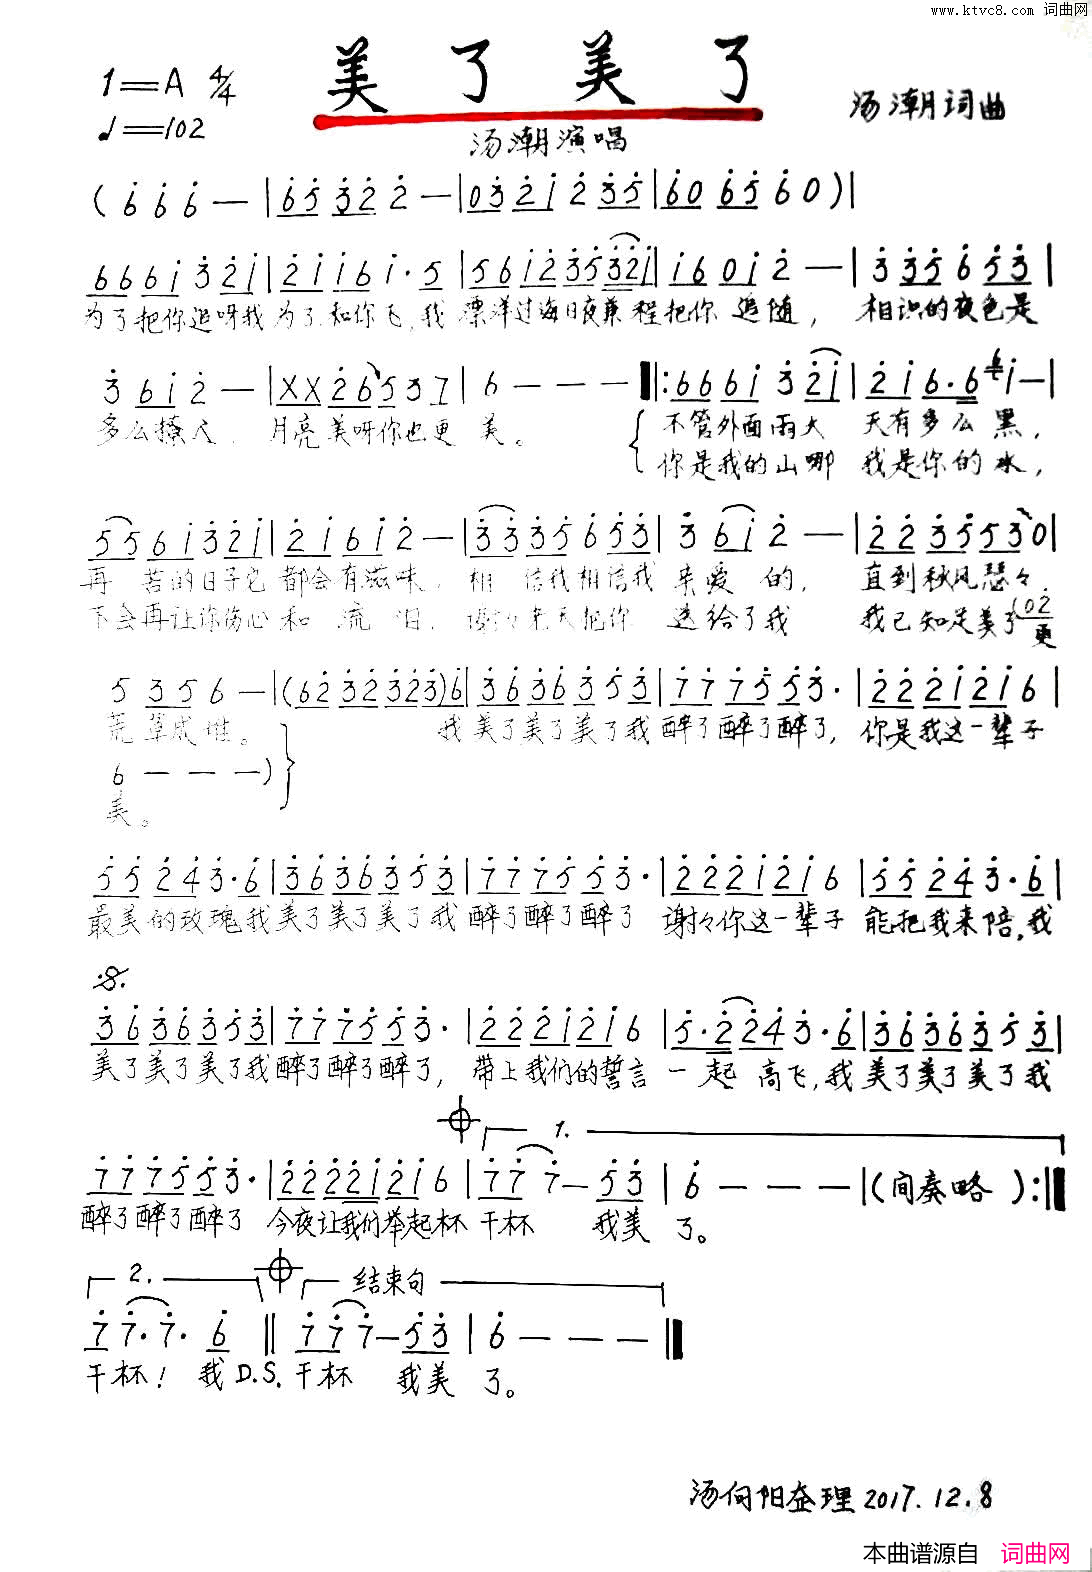 www.ktvc8.com 词曲网
美了美了
1=A 4/4
汤潮词曲
♩=102
汤潮演唱
(6 6 6 — | 65 32 2 — | 03 21 2 35 | 60 65 60) |
666i 3 2i | 2i i6 i·5 | 56i2 353 2i | i60i 2 — | 3 35 6 53 |
为了把你追呀我为了和你飞,我 漂洋过海日夜兼程把你 追随, 相识的夜色是
3 6i 2 — | XX 26 53 7 | 6 — — — ‖: 666i 3 2i | 2i6·6 i — |
多么撩人, 月亮美呀你也更 美。 不管外面雨大 天有多么黑,
你是我的山哪 我是你的水,
55 6i 3 2i | 2i 6i 2 — | 333 5 6 53 | 3 6i 2 — | 22 35 53 0 |
再 苦的日子它 都会有滋味, 相 信我相信我 亲爱 的, 直到秋风瑟々,
不会再让你伤心和 流 泪, 谢谢老天把你 送给了我 我已知足美了
(02
更
5 35 6 — | (62 32 323) 6 | 36 36 3 53 | 77 75 53· | 222i 2i 6 |
荒草成堆。 我美了美了美了我醉了醉了醉了, 你是我这一辈子
6 — — —)
美。
55 24 3·6 | 36 36 3 53 | 77 75 53· | 222i 2i 6 | 55 24 3·6 |
最美的玫瑰我美了美了美了我醉了醉了醉了 谢々你这一辈子 能把我来陪,我
36 36 3 53 | 77 75 53· | 222i 2i 6 | 5·2 24 3·6 | 36 36 3 53 |
美了美了美了我醉了醉了醉了, 带上我们的誓言 一起 高飞,我美了美了美了我
1.
77 75 53· | 2222i 2i 6 | 77 7 — 53 | 6 — — — | (间奏略):‖
醉了醉了醉了 今夜让我们举起杯 干杯 我美 了。
2. 结束句
7 7·7· 6 ‖ 77 7 — 53 | 6 — — — ‖
干杯! 我 D.S. 干杯 我美 了。
汤向阳整理2017.12.8
本曲谱源自 词曲网